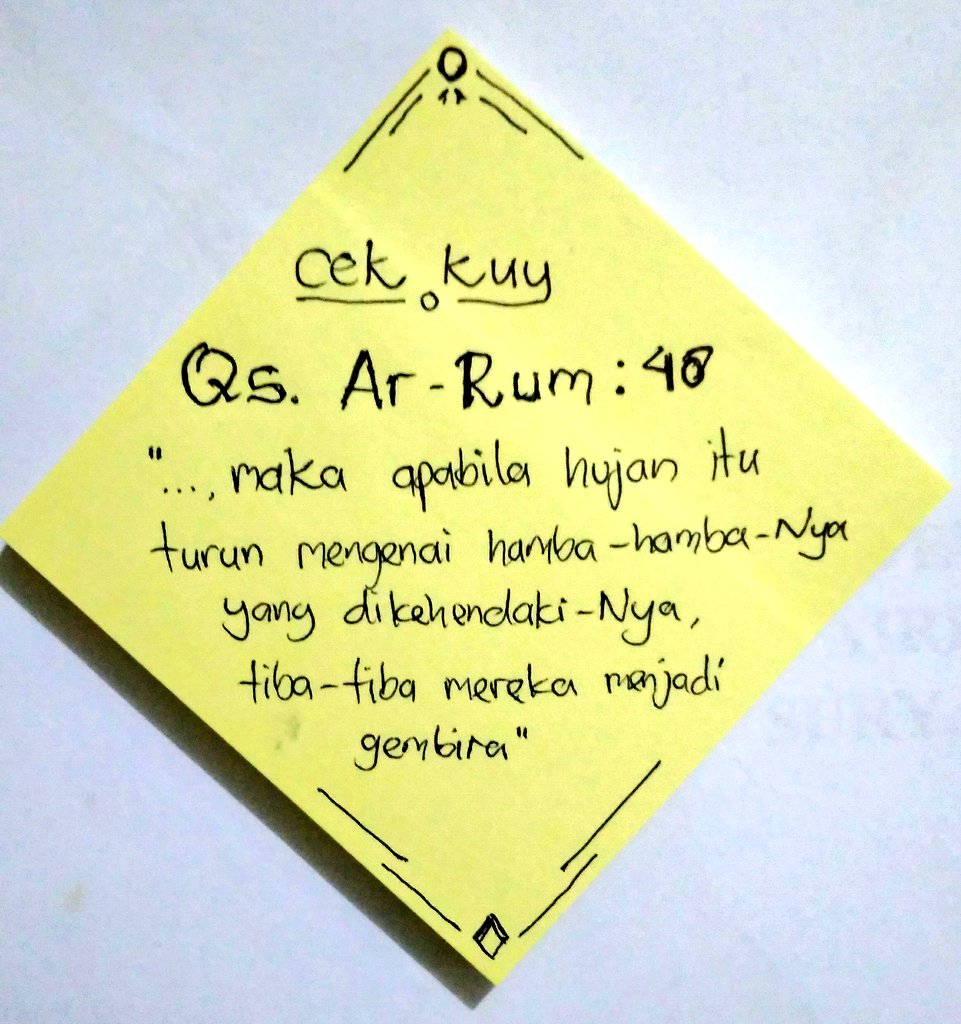 Cek kuy
Qs. Ar-Rum : 48
"..., maka apabila hujan itu
turun mengenai hamba-hamba-Nya
yang dikehendaki-Nya,
tiba-tiba mereka menjadi
gembira"